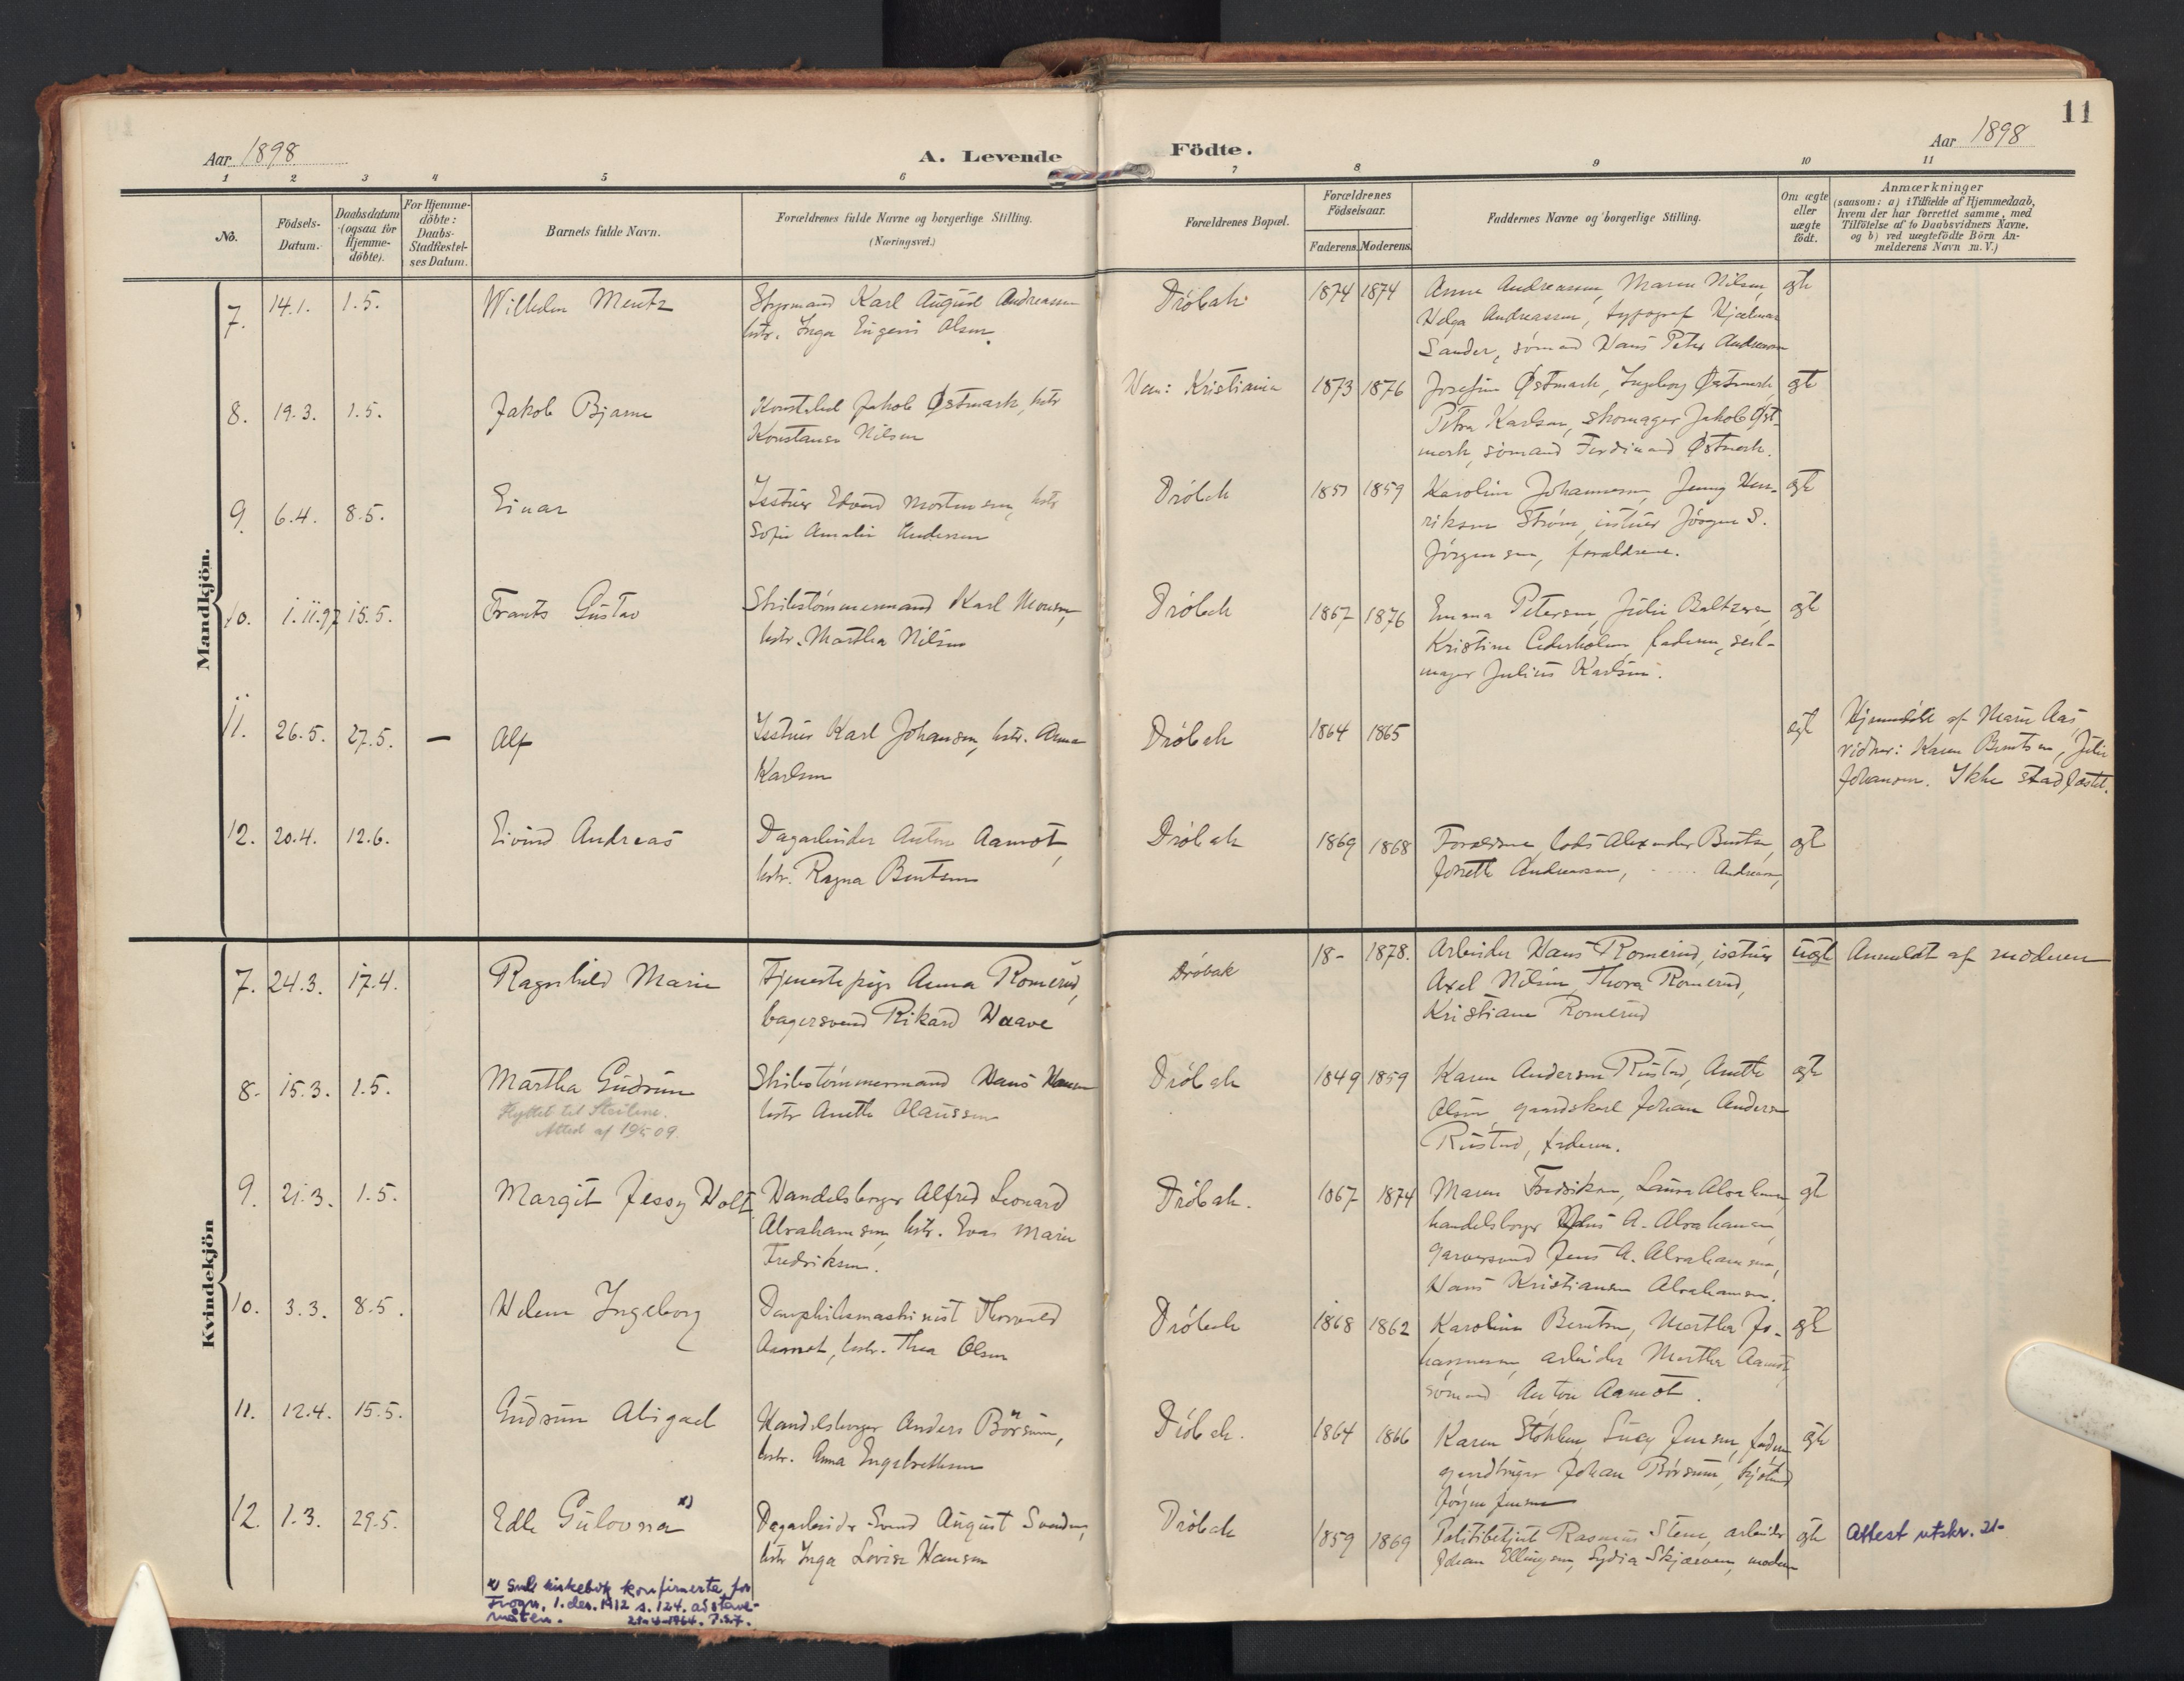 11
Aar 1898
A. Levende Födte.
Aar 1898
1 2 3 4 5 6 7 8 9 10 11
No.
Födsels-
Datum.
Daabsdatum
(ogsaa for
Hjemme-
döbte).
For Hjemme-
döbte:
Daabs-
Stadfæstel-
ses Datum.
Barnets fulde Navn.
Forældrenes fulde Navne og borgerlige Stilling.
(Næringsvei.)
Forældrenes Bopæl.
Forældrenes
Födselsaar.
Faderens. Moderens.
Faddernes Navne og borgerlige Stilling.
Om ægte
eller
uægte
födt.
Anmærkninger
(saasom: a) i Tilfælde af Hjemmedaab,
hvem der har forrettet samme, med
Tilföielse af to Daabsvidners Navne,
og b) ved uægtefödte Börn An-
melderens Navn m. V.)
Mandkjön.
7. 14.1. 1.5. Wilhelm Mentz
Styrmand Karl August Andreassen
hstr. Inga Eugeni Olsen
Dröbak 1874 1874
Anna Andreassen, Maren Nilsen,
Helga Andreassen, typograf Hjalmar
Sander, sömand Hans Peter Andreassen
egte
8. 19.3. 1.5. Jakob Bjarne
Konstabel Jakob Østmark, hstr
Konstanse Nilsen
Kristiania 1873 1876
Josefine Østmark, Ingeborg Østmark,
Petra Karlsen, skomager Jakob Øst-
mark, sömand Ferdinand Østmark.
egte
9. 6.4. 8.5. Einar
Isstuer Edvard Mortensen, hstr
Sofie Amalie Andersen
Dröbak 1857 1859
Karoline Johannesen, Jenny Hen-
riksen Ström, isstuer Jörgen S.
Jörgensen, forældrene.
egte
10. 1.11.97 15.5. Frants Gustav
Skibstömmermand Karl Monsen,
hstr. Martha Nilsen
Dröbak 1867 1876
Emma Petersen, Julie Baltzersen,
Kristine Cederholm, faderen, seil-
mager Julius Karlsen.
egte
11. 26.5. 27.5. — Alf
Isstuer Karl Johansen, hstr. Anna
Karlsen
Dröbak 1864 1865
egte
Hjemmedöbt af Marie Aas,
vidner: Karen Berntsen, Julie
Johansen. Ikke stadfæstet.
12. 20.4. 12.6. Eivind Andreas
Dagarbeider Anton Aamot,
hstr. Ragna Berntsen
Dröbak 1869 1868
Forældrene, lods Alexander Berntsen,
Josette Andreassen, ..... Andreassen,
egte
Kvindekjön
7. 24.3. 17.4. Ragnhild Marie
Tjenestepige Anna Romerud,
bagersvend Rikard Haave
Dröbak 18- 1878.
Arbeider Hans Romerud, isstuer
Axel Nilsen, Thora Romerud,
Kristiane Romerud
uegte
Anmeldt af moderen
8. 15.3. 1.5. Martha Gudrun
Flyttet til Steilene.
Attest af 19/5 09.
Skibstömmermand Hans Hansen
hstr Anette Olaussen
Dröbak 1849 1859
Karen Andersen Rustad, Anette
Olsen, gaardskarl Johan Andersen
Rustad, faderen.
egte
9. 21.3. 1.5. Margit Jessy Holt
Handelsborger Alfred Leonard
Abrahamsen, hstr. Eva Marie
Fredriksen.
Dröbak. 1867 1874
Maren Fredriksen, Laura Abrahamsen,
handelsborger A. Abrahamsen,
garversvend Jens A. Abrahamsen,
Hans Kristiansen Abrahamsen.
egte
10. 3.3. 8.5. Helene Ingeborg
Dampskibsmaskinist Thorvald
Aamot, hstr. Thea Olsen
Dröbak 1868 1862
Karoline Berntsen, Martha Jo-
hannesen, arbeider Aamot,
sömand Anton Aamot.
egte
11. 12.4. 15.5. Gudrun Abigael
Handelsborger Anders Börsum,
hstr. Anna Engebrethsen
Dröbak. 1864 1866
Karen Stöhlen, Lucy Jensen, faderen
gaardbruger Johan Börsum,
Jörgen Jensen
egte
12. 1.3. 29.5. Edle Gulovna x)
Dagarbeider Svend August Svendsen,
hstr Inga Lovise Hansen
Dröbak 1859 1869
Politibetjent Rasmus Stene, arbeider
Johan Ellingsen, Lydia Skjærven, moderen
egte
Attest utskr. 21-
x) kirkebok konfirmerte for
Frogn, 1. des. 1912 s. 124.
måten. 21-4-1964.